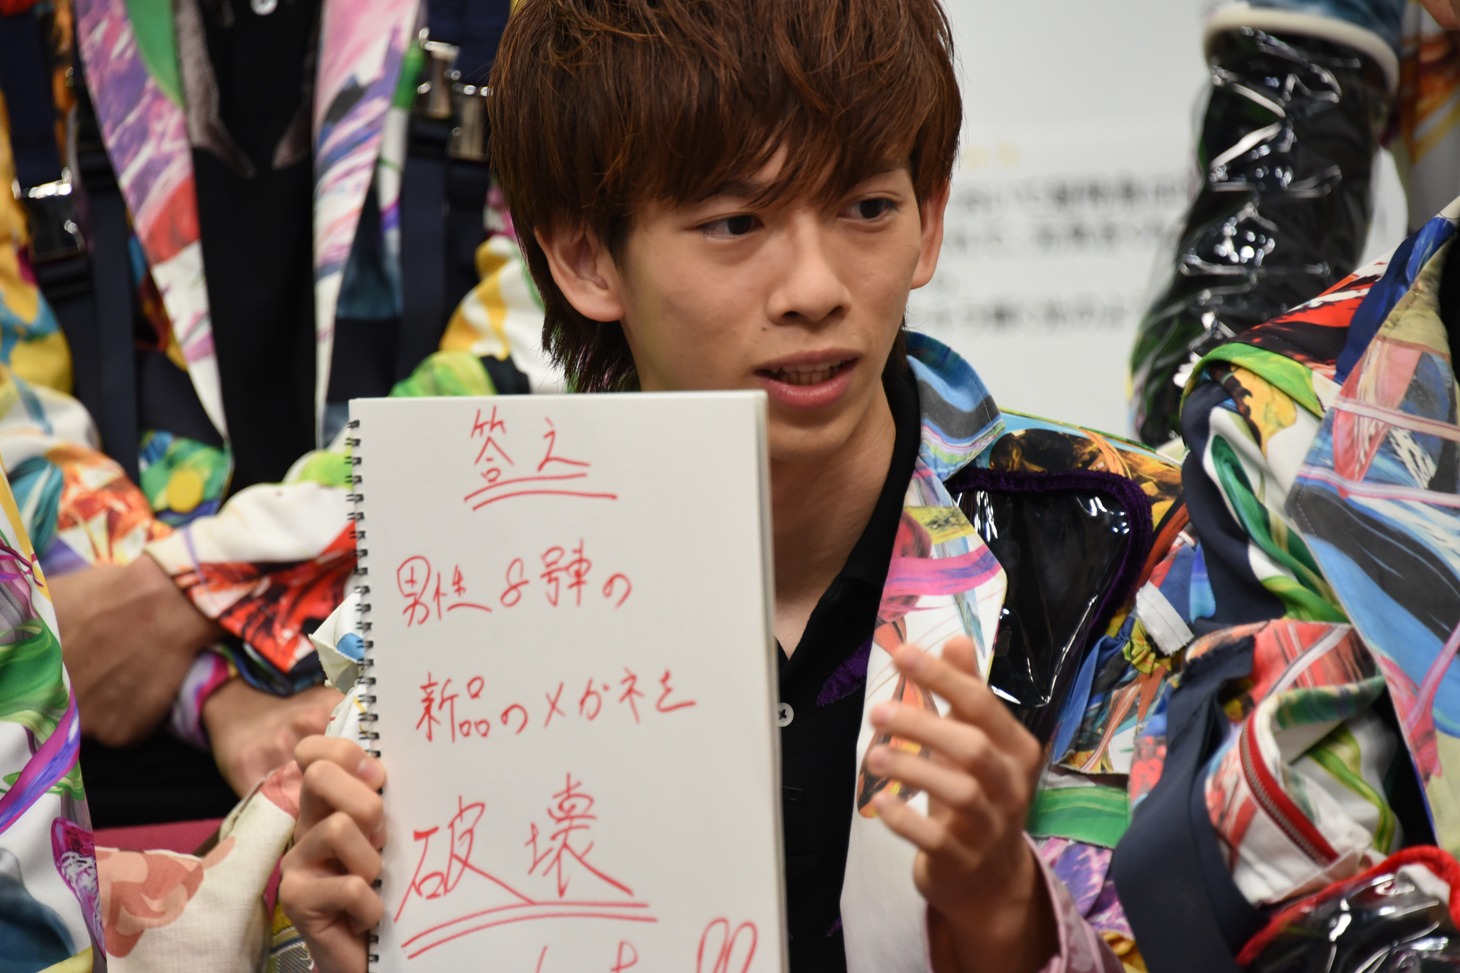 答え
男性8号車の
新品のメガネを
破壊